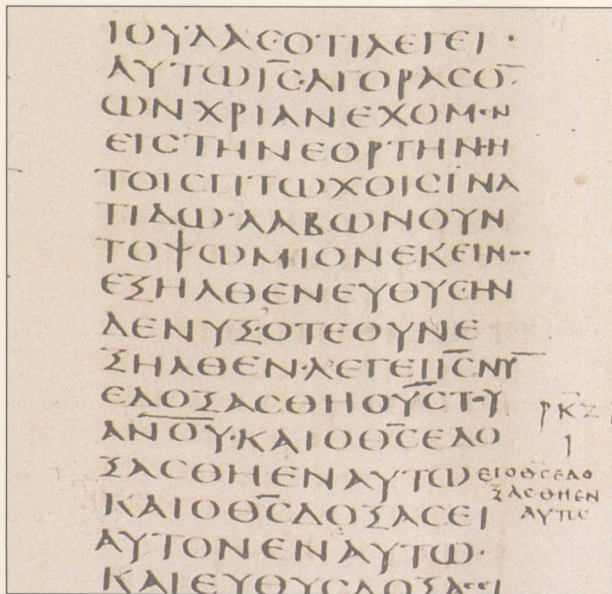 ΙΟΥΔΑϹΟΤΙΛΕΓΕΙ·
ΑΥΤΩΙ̅Ϲ̅·ΑΓΟΡΑϹΟ̅
ΩΝΧΡΙΑΝΕΧΟΜΕΝ
ΕΙϹΤΗΝΕΟΡΤΗΝ·Η
ΤΟΙϹΠΤΩΧΟΙϹΙΝΑ
ΤΙΔΩ·ΛΑΒΩΝΟΥΝ
ΤΟΨΩΜΙΟΝΕΚΕΙΝ
ΕΞΗΛΘΕΝΕΥΘΥϹ·ΗΝ
ΔΕΝΥΞ·ΟΤΕΟΥΝΕ
ΞΗΛΘΕΝ·ΛΕΓΕΙΙ̅Ϲ̅ΝΥ̅
ΕΔΟΞΑϹΘΗΟΥ̅Ϲ̅ΤΟΥ
ΑΝ̅Ο̅Υ̅·ΚΑΙΟΘ̅Ϲ̅ΕΔΟ
ΞΑϹΘΗΕΝΑΥΤΩ
ΚΑΙΟΘ̅Ϲ̅ΔΟΞΑϹΕΙ
ΑΥΤΟΝΕΝΑΥΤΩ·
ΚΑΙΕΥΘΥϹΔΟΞΑϹΕΙ
ΡΚ̅Ζ
Ι
ΕΙΟΘ̅Ϲ̅ΕΔΟ
ΞΑϹΘΗΕΝ
ΑΥΤΩ